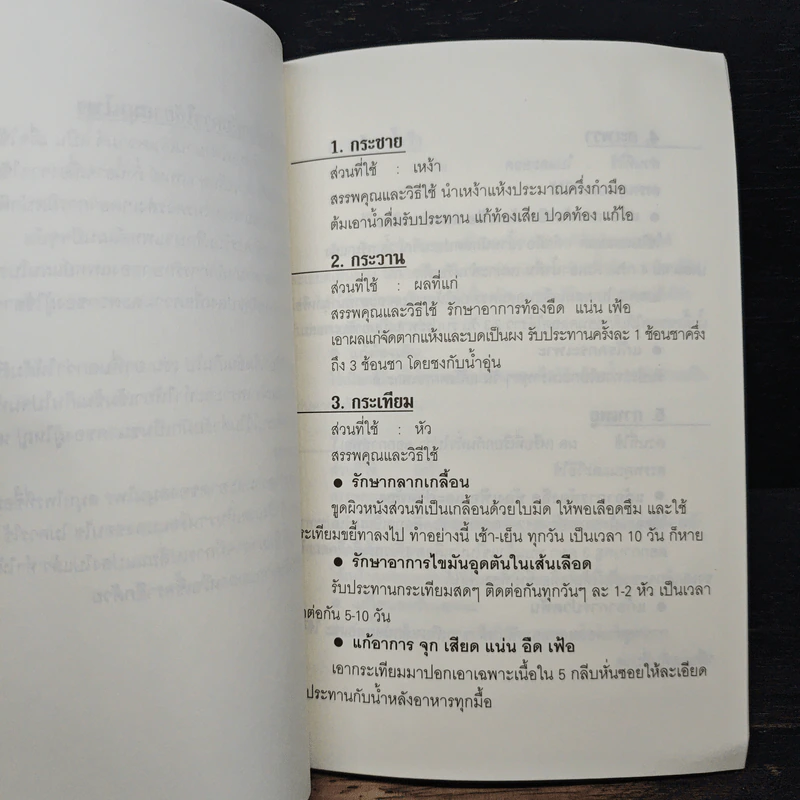 1. กระชาย
ส่วนที่ใช้ : เหง้า
สรรพคุณและวิธีใช้ นำเหง้าแห้งประมาณครึ่งกำมือ
ต้มเอาน้ำดื่มรับประทาน แก้ท้องเสีย ปวดท้อง แก้ไอ
2. กระวาน
ส่วนที่ใช้ : ผลที่แก่
สรรพคุณและวิธีใช้ รักษาอาการท้องอืด แน่น เฟ้อ
เอาผลแก่จัดตากแห้งและบดเป็นผง รับประทานครั้งละ 1 ช้อนชาครึ่ง
ถึง 3 ช้อนชา โดยชงกับน้ำอุ่น
3. กระเทียม
ส่วนที่ใช้ : หัว
สรรพคุณและวิธีใช้
● รักษากลากเกลื้อน
ขูดผิวหนังส่วนที่เป็นเกลื้อนด้วยใบมีด ให้พอเลือดซึม และใช้
ระเทียมขยี้ทาลงไป ทำอย่างนี้ เช้า-เย็น ทุกวัน เป็นเวลา 10 วัน ก็หาย
● รักษาอาการไขมันอุดตันในเส้นเลือด
รับประทานกระเทียมสดๆ ติดต่อกันทุกวันๆ ละ 1-2 หัว เป็นเวลา
ต่อกัน 5-10 วัน
● แก้อาการ จุก เสียด แน่น อืด เฟ้อ
เอากระเทียมมาปอกเอาเฉพาะเนื้อใน 5 กลีบหั่นซอยให้ละเอียด
ประทานกับน้ำหลังอาหารทุกมื้อ